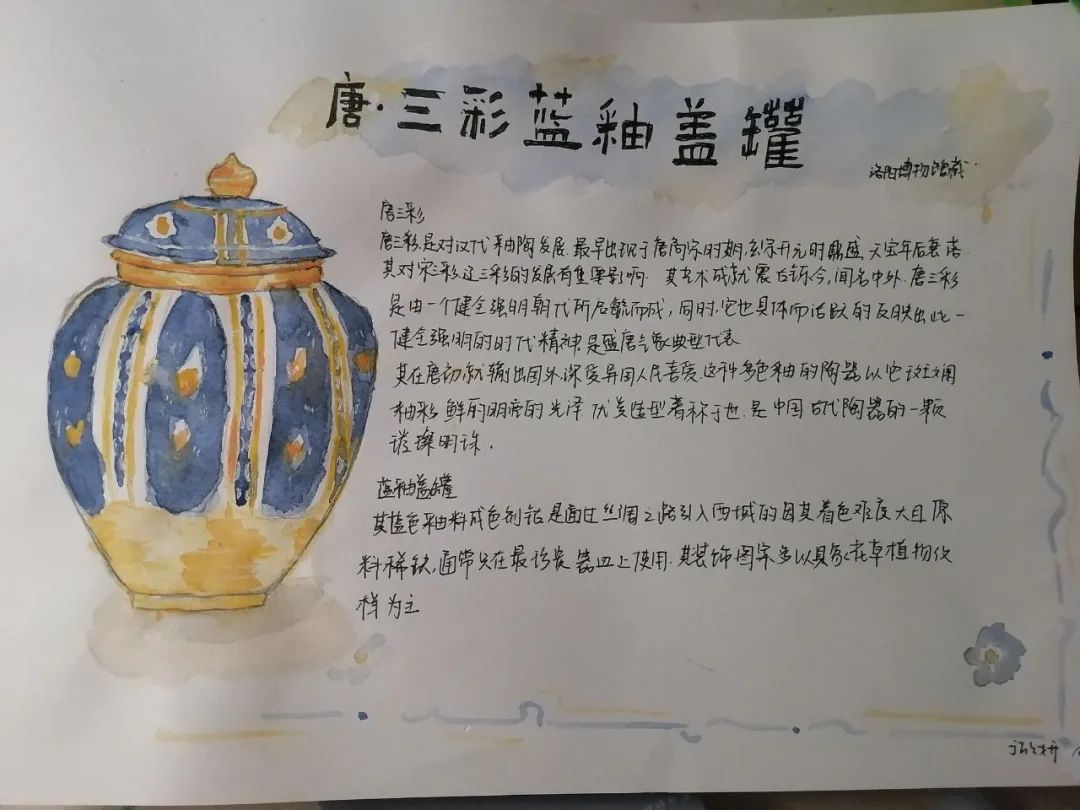 唐·三彩蓝釉盖罐
洛阳博物馆藏.
唐三彩
唐三彩是对汉代釉陶发展.最早出现于唐高宗时期.玄宗开元时鼎盛,天宝年后衰落.
其对宋三彩辽三彩的发展有重要影响.其艺术成就震古铄今,闻名中外.唐三彩
是由一个健全强明朝代所启毓而成,同时,它也具体而活跃的反映出此一
健全强明的时代精神是盛唐气象典型代表
其在唐初就输出国外深受异国人民喜爱.这种多色釉的陶器以它斑斓
釉彩 鲜的明亮的光泽 优美造型著称于世.是中国古代陶器的一颗
璀璨明珠.
蓝釉盖罐
其蓝色釉料成色剂钴是通过丝绸之路引入西域的因其着色难度大且原
料稀缺,通常只在最珍贵器皿上使用.其装饰图案多以具象花草植物仪
样为主